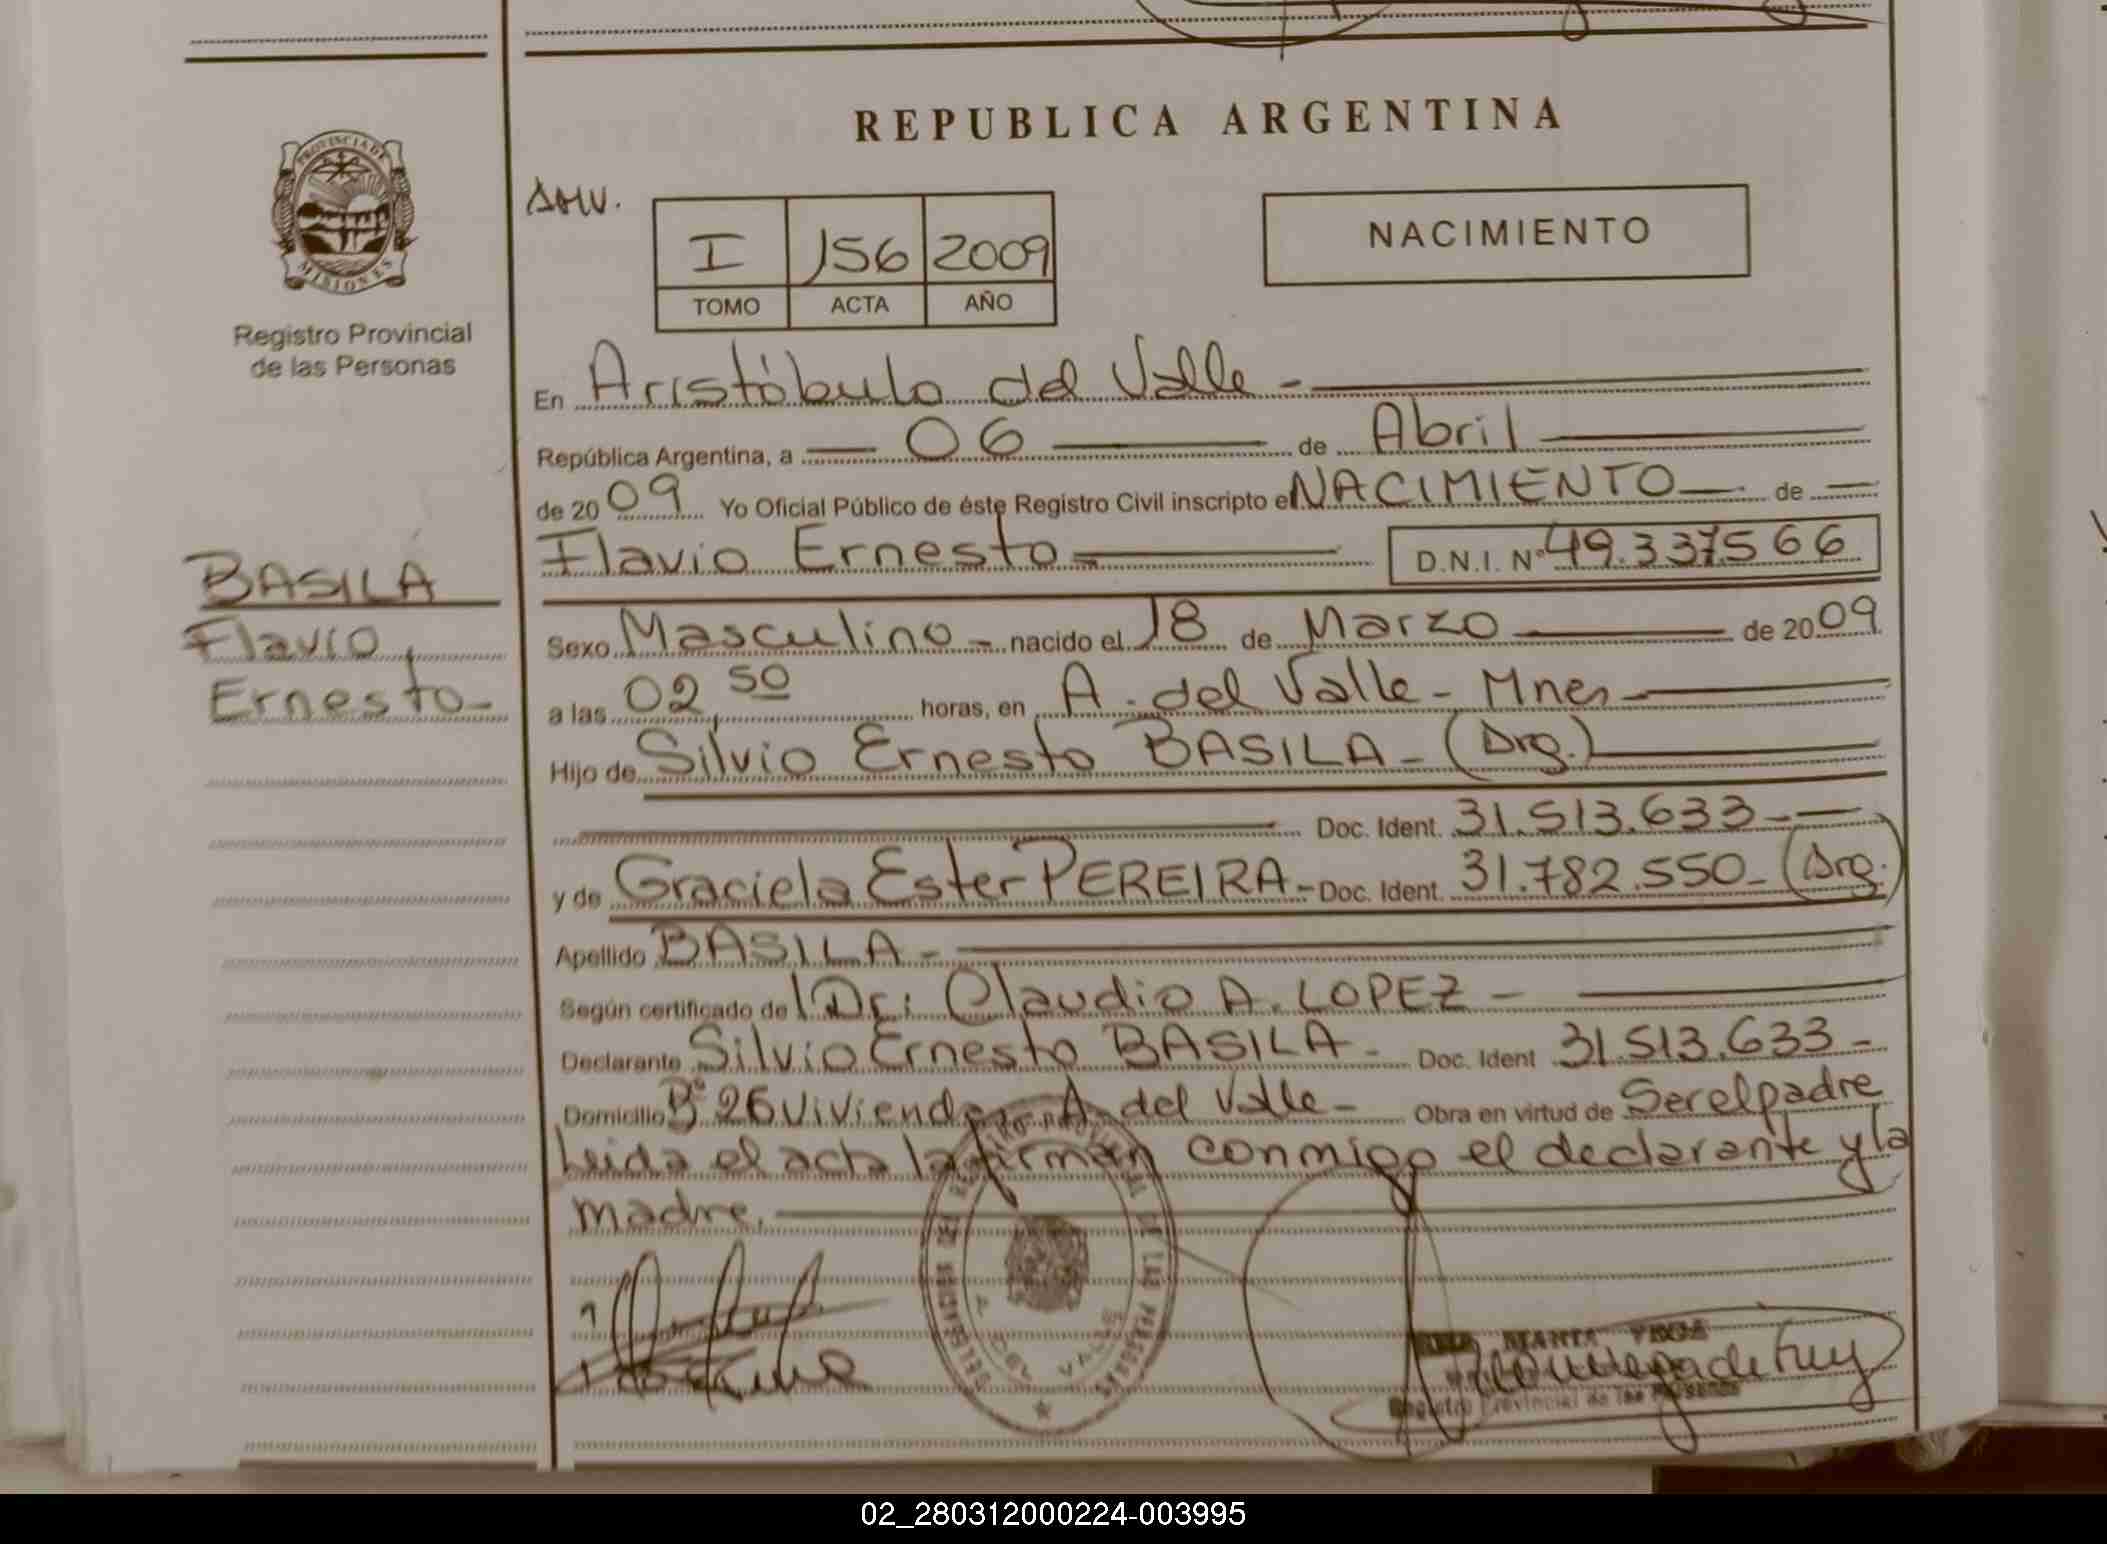 REPUBLICA ARGENTINA
PROVINCIA DE
MISIONES
Registro Provincial
de las Personas
I 156 2009
TOMO ACTA AÑO
NACIMIENTO
En Aristóbulo del Valle -
República Argentina, a 06 de Abril
de 2009 Yo Oficial Público de éste Registro Civil inscripto el NACIMIENTO de
BASILA
Flavio
Ernesto
Flavio Ernesto D.N.I. Nº 49.337.566
Sexo Masculino - nacido el 18 de Marzo de 2009
a las 02,50 horas, en A. del Valle - Mnes
Hijo de Silvio Ernesto BASILA - (Arg.)
Doc. Ident. 31.513.633 -
y de Graciela Ester PEREIRA - Doc. Ident. 31.782.550 - (Arg.)
Apellido BASILA -
Según certificado de Dr: Claudio A. LOPEZ -
Declarante Silvio Ernesto BASILA - Doc. Ident 31.513.633 -
Domicilio Bº 26 Viviendas A. del Valle - Obra en virtud de Ser el padre
Leida el acta la firman conmigo el declarante y la
madre.
Registro Provincial de las Personas
02_280312000224-003995